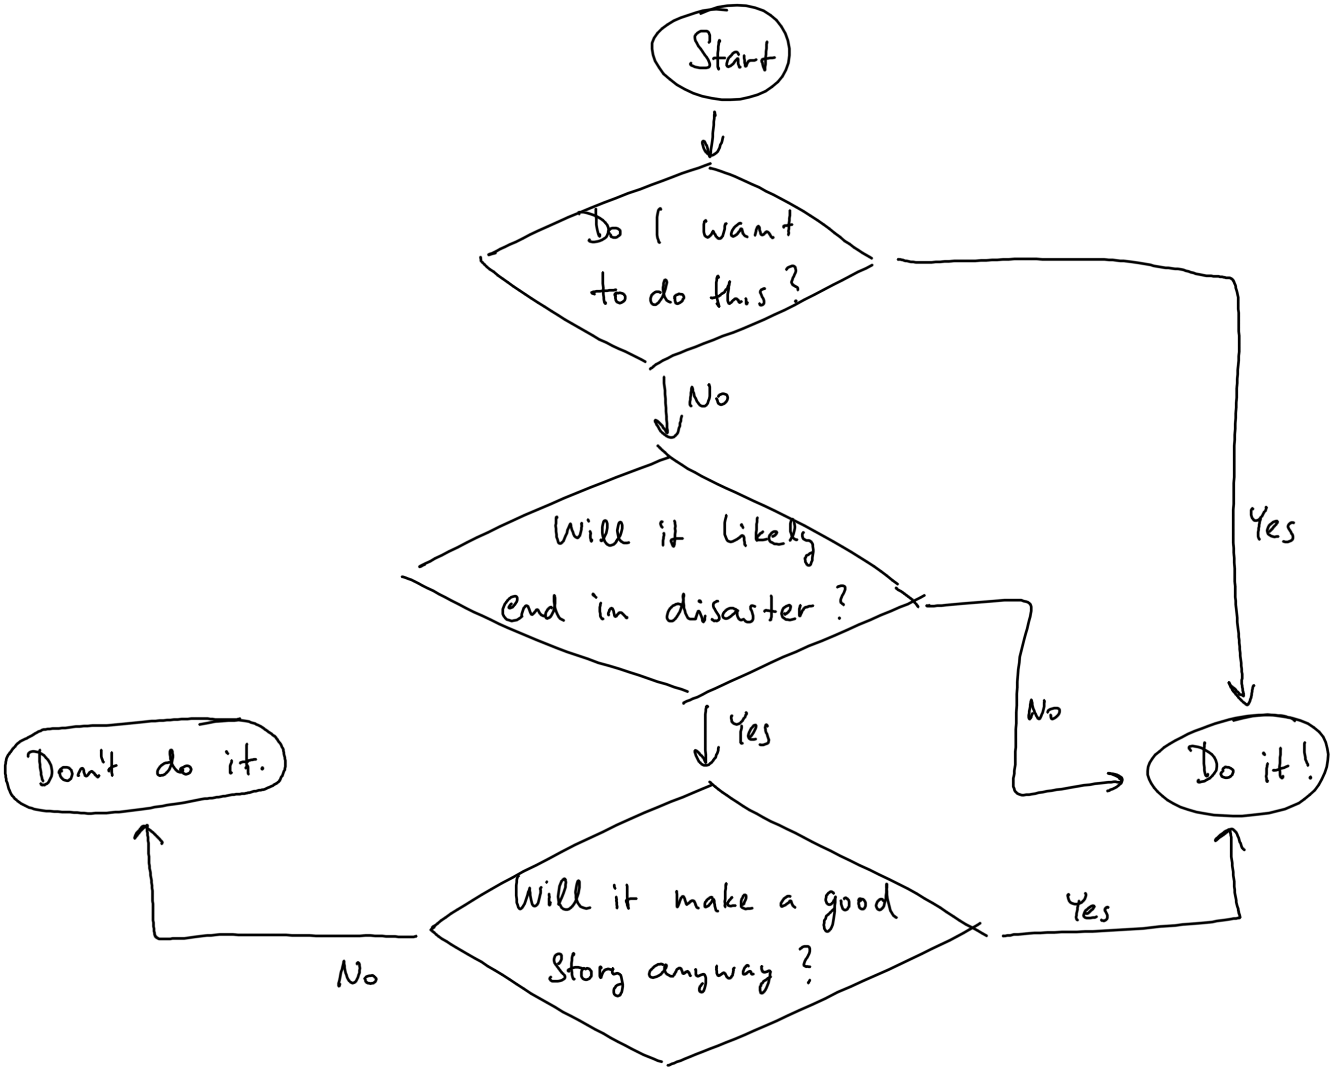 Start
Do I want
to do this?
No
Yes
Will it likely
end in disaster?
No
Yes
Don't do it.
Do it!
Will it make a good
story anyway?
Yes
No